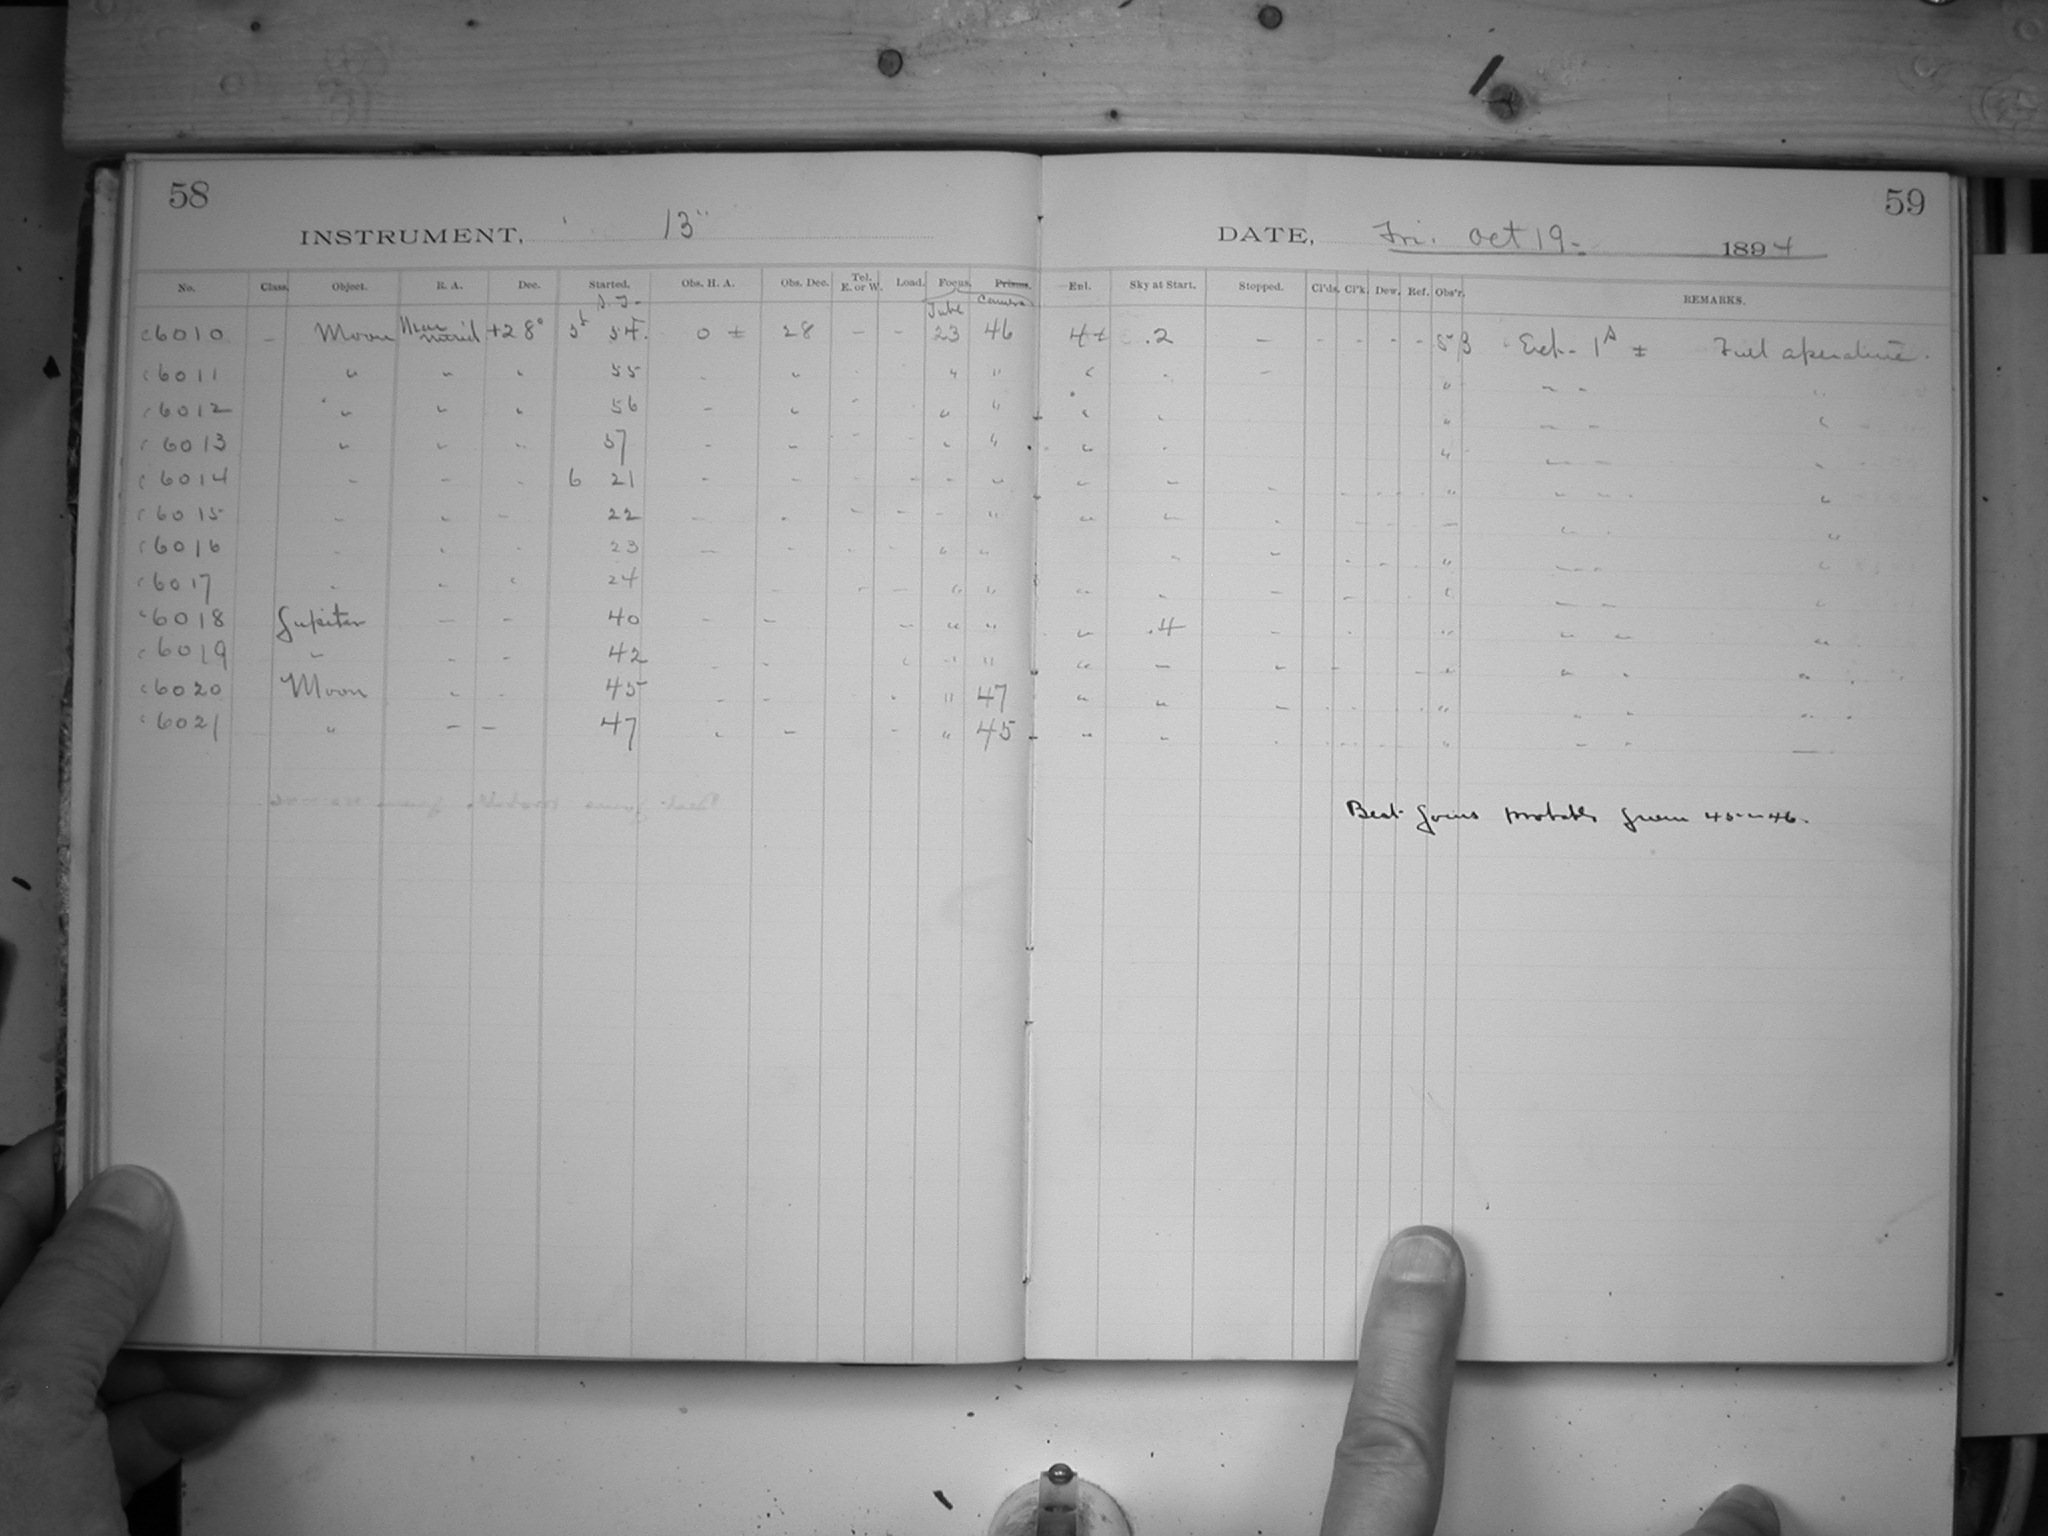 58
59
INSTRUMENT, 13"
DATE, Fri. Oct 19. 1894
No. Class. Object. R. A. Dec. Started. Obs. H. A. Obs. Dec. Tel. E. or W. Load. Focus. Prisms. Enl. Sky at Start. Stopped. Cl'ds. Cl'k. Dew. Ref. Obs'r. REMARKS.
S. T. Tube Camera
c6010 – Moon Near merid +28° 5h 54. 0 ± 28 – – 23 46 4+ .2 – - - - - Exp. 1s ± Full aperature.
c6011 " " " 55 " " " "
c6012 " " " 56 " " " "
c6013 " " " 57 " " " "
c6014 " " " 6 21 " " " "
c6015 " " " 22 " " " "
c6016 " " " 23 " " " "
c6017 " " " 24 " " " "
c6018 Jupiter – – 40 – – " " " .4
c6019 " " " 42 " " " "
c6020 Moon " " 45 " " " 47
c6021 " – – 47 " " " 45
Best focus probably from 45–46.